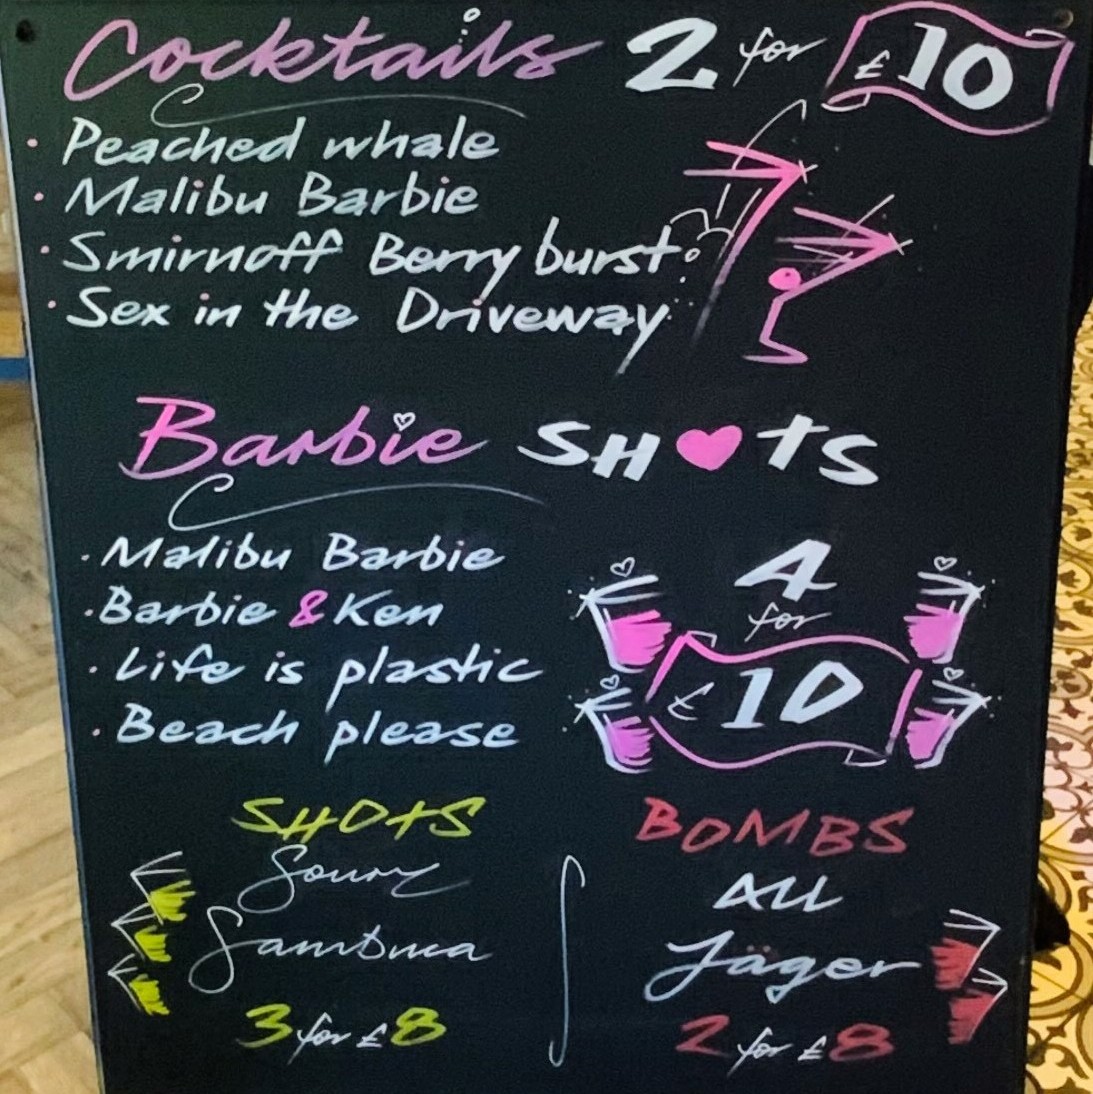 Cocktails 2 for £10
• Peached whale
• Malibu Barbie
• Smirnoff Berry burst
• Sex in the Driveway
Barbie SH♥TS
• Malibu Barbie
• Barbie & Ken
• Life is plastic
• Beach please
4
for
£10
SHOTS
Sourz
Sambuca
3 for £8
BOMBS
ALL
Jäger
2 for £8